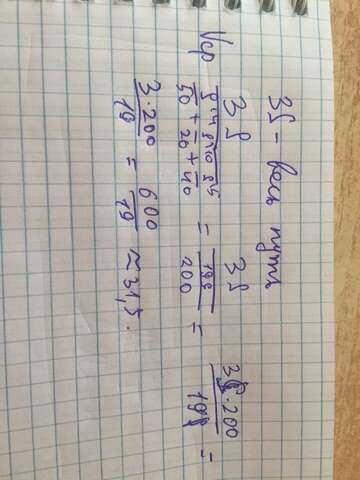 3S - весь путь
Vср 3S / (S/50 + S/20 + S/40) = 3S / (19S/200) = 3S·200 / 19S =
3·200 / 19 = 600 / 19 ≈ 31,5.